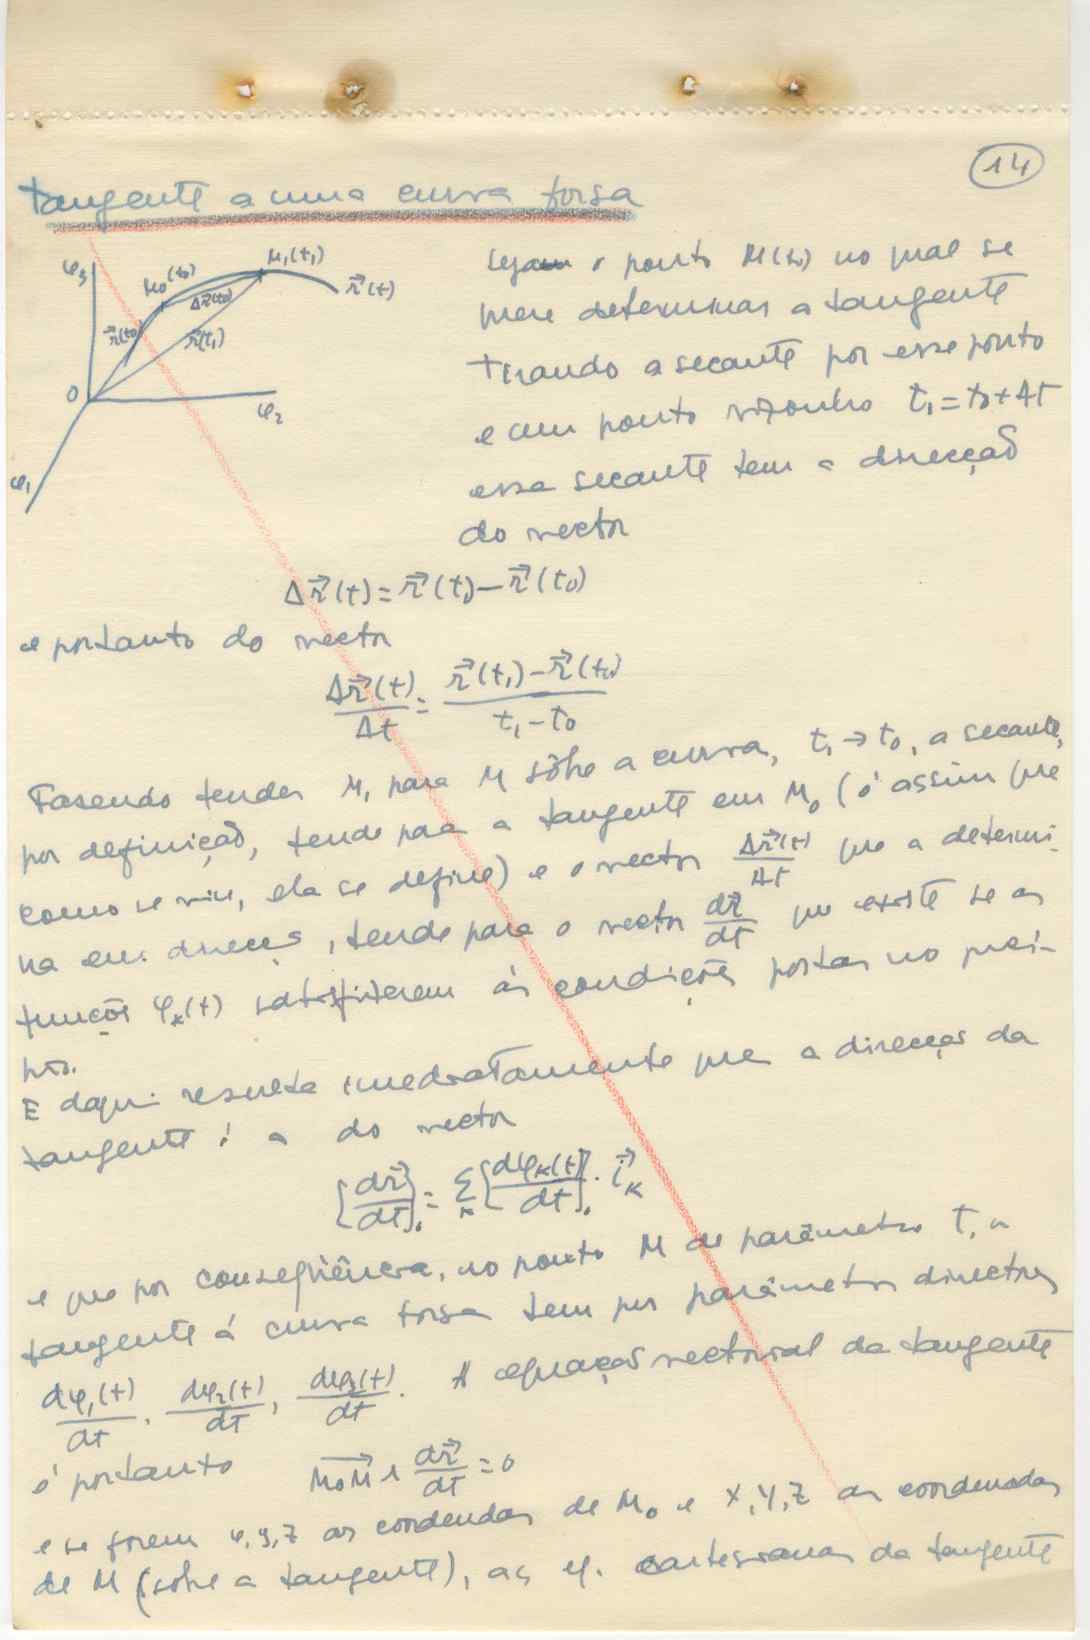 14
tangente a uma curva torsa
φ3
M0(t0)
M1(t1)
Δr⃗(t0)
r⃗(t)
r⃗(t0)
r⃗(t1)
O
φ2
φ1
Seja o ponto M(t0) no qual se
quere determinar a tangente
Tirando a secante por esse ponto
e um ponto vizinho t1=t0+Δt
essa secante tem a direcção
do vector
Δr⃗(t)=r⃗(t1)−r⃗(t0)
e portanto do vector
Δr⃗(t)/Δt = (r⃗(t1)−r⃗(t0))/(t1−t0)
Fasendo tender M1 para M sôbre a curva, t1→t0, a secante,
por definição, tende para a tangente em M0 (é assim que
como se viu, ela se define) e o vector Δr⃗(t)/Δt que a determi-
na em direcção, tende para o vector dr⃗/dt que existe se as
funções φk(t) satisfizerem às condições postas no prei-
pio.
E daqui resulta imediatamente que a direcção da
tangente é a do vector
[dr⃗/dt]0 = Σk [dφk(t)/dt]0 · i⃗k
e que por conseqüência, no ponto M de parâmetro t, a
tangente á curva torsa tem por parâmetros directores
dφ1(t)/dt, dφ2(t)/dt, dφ3(t)/dt. A equação vectorial da tangente
é portanto M0M⃗ ∧ dr⃗/dt = 0
e se forem x,y,z as cordendas de M0 e X,Y,Z as coordenadas
de M (sôbre a tangente), as eq. cartesianas da tangente